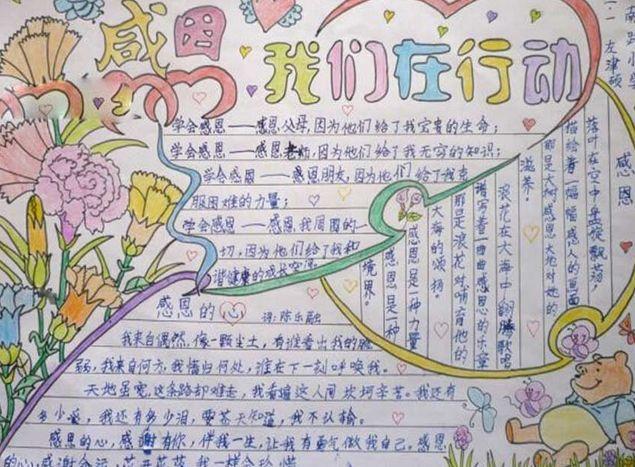 感恩
我们在行动
学会感恩——感恩父母,因为他们给了我宝贵的生命;
学会感恩——感恩老师,因为他们给了我无穷的知识;
学会感恩——感恩朋友,因为他们给了我克
服困难的力量;
学会感恩——感恩我周围的一
切,因为他们给了我和
谐健康的成长空间
感恩
落叶在空中盘旋飘荡,
描绘着一幅幅感人的画面
那是大树感恩大地对她的
滋养!
浪花在大海中翻腾歌唱
谱写着一曲曲感恩的乐章
那是浪花对哺育他的
大海的颂扬。
感恩是一种力量
感恩是一种
境界。
感恩的心
词:陈乐融
我来自偶然,像一颗尘土,有谁看出我的脆
弱,我来自何方,我情归何处,谁在下一刻呼唤我。
天地虽宽,这条路却难走,我看遍这人间坎坷辛苦。我还有
多少爱,我还有多少泪,要苍天知道,我不认输。
感恩的心,感谢有你,伴我一生,让我有勇气做我自己。感恩
的心,感谢命运,花开花落,我一样会珍惜